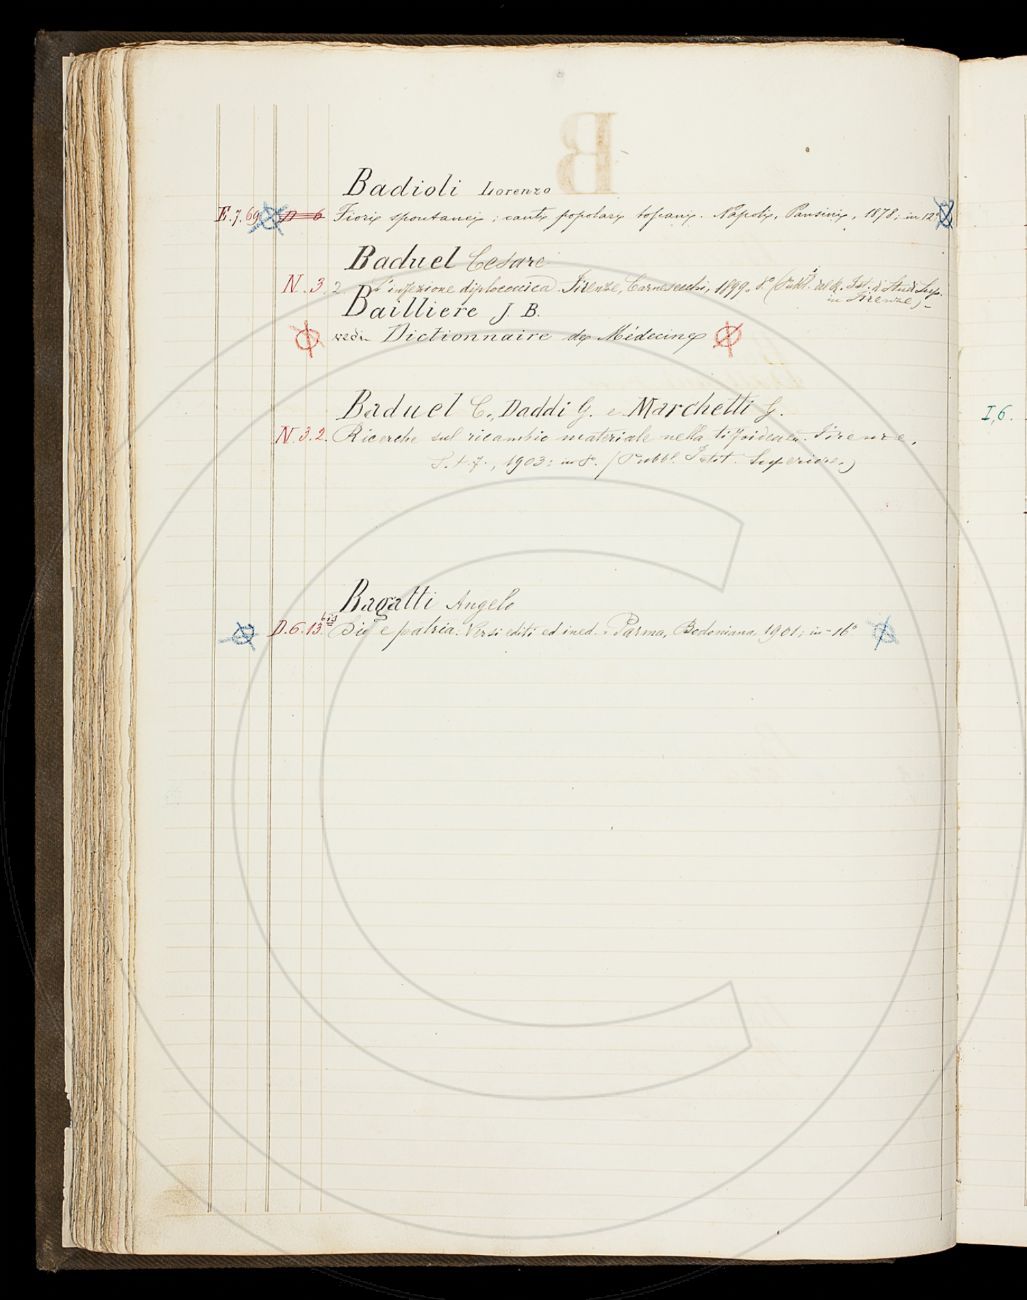 B
Badioli Lorenzo
E.7.69 D 6 Fiori spontanei; canti popolari toscani. Napoli, Pansini, 1878; in 12°
Baduel Cesare
N.3.2. L'infezione diplococcica. Firenze, Carnesecchi, 1899. 8° (Pubbl. del R. Ist. di Studi Sup.
in Firenze)
Bailliere J B.
vedi Dictionnaire de Médecine
Baduel C., Daddi G. e Marchetti G.
I,6.
N.3.2. Ricerche sul ricambio materiale nella tifoidea. Firenze,
1903: in 8°. (Pubbl. Istit. Superiore.)
Bagatti Angelo
D.6.13.bis Dio e patria. Versi editi ed ined. Parma, Bodoniana, 1901; in-16°